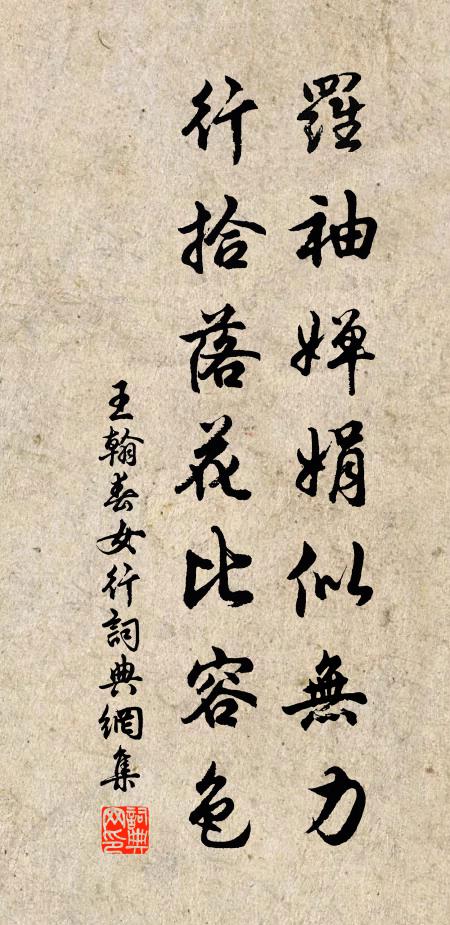 羅袖嬋娟似無力
行拾落花比容色
王翰春女行詞典網集
詞典網印